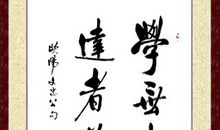 學無
達者為
歐陽文忠公句